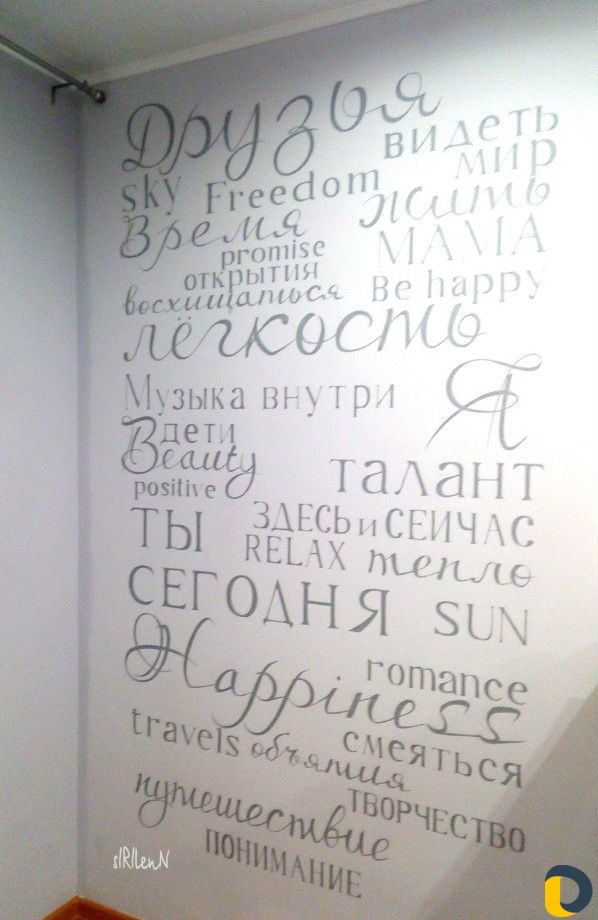 Друзья
видеть
sky Freedom мир
Время жить
promise МАМА
открытия
восхищаться Be happy
лёгкость
Музыка внутри Я
дети
Beauty талант
positive
ТЫ ЗДЕСЬ и СЕЙЧАС
RELAX тепло
СЕГОДНЯ SUN
Happiness romance
travels объятия смеяться
путешествие ТВОРЧЕСТВО
ПОНИМАНИЕ
sIRIlenN